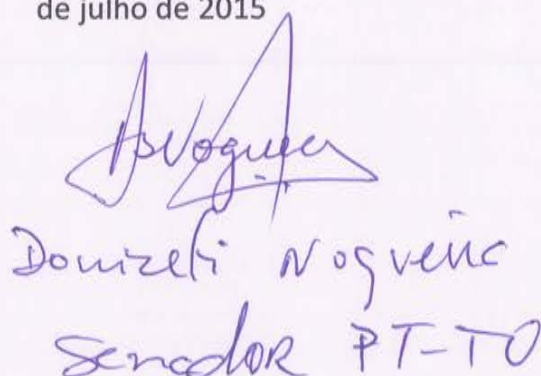 de julho de 2015
DoNogueira
Donizeti Nogueira
Senador PT-TO